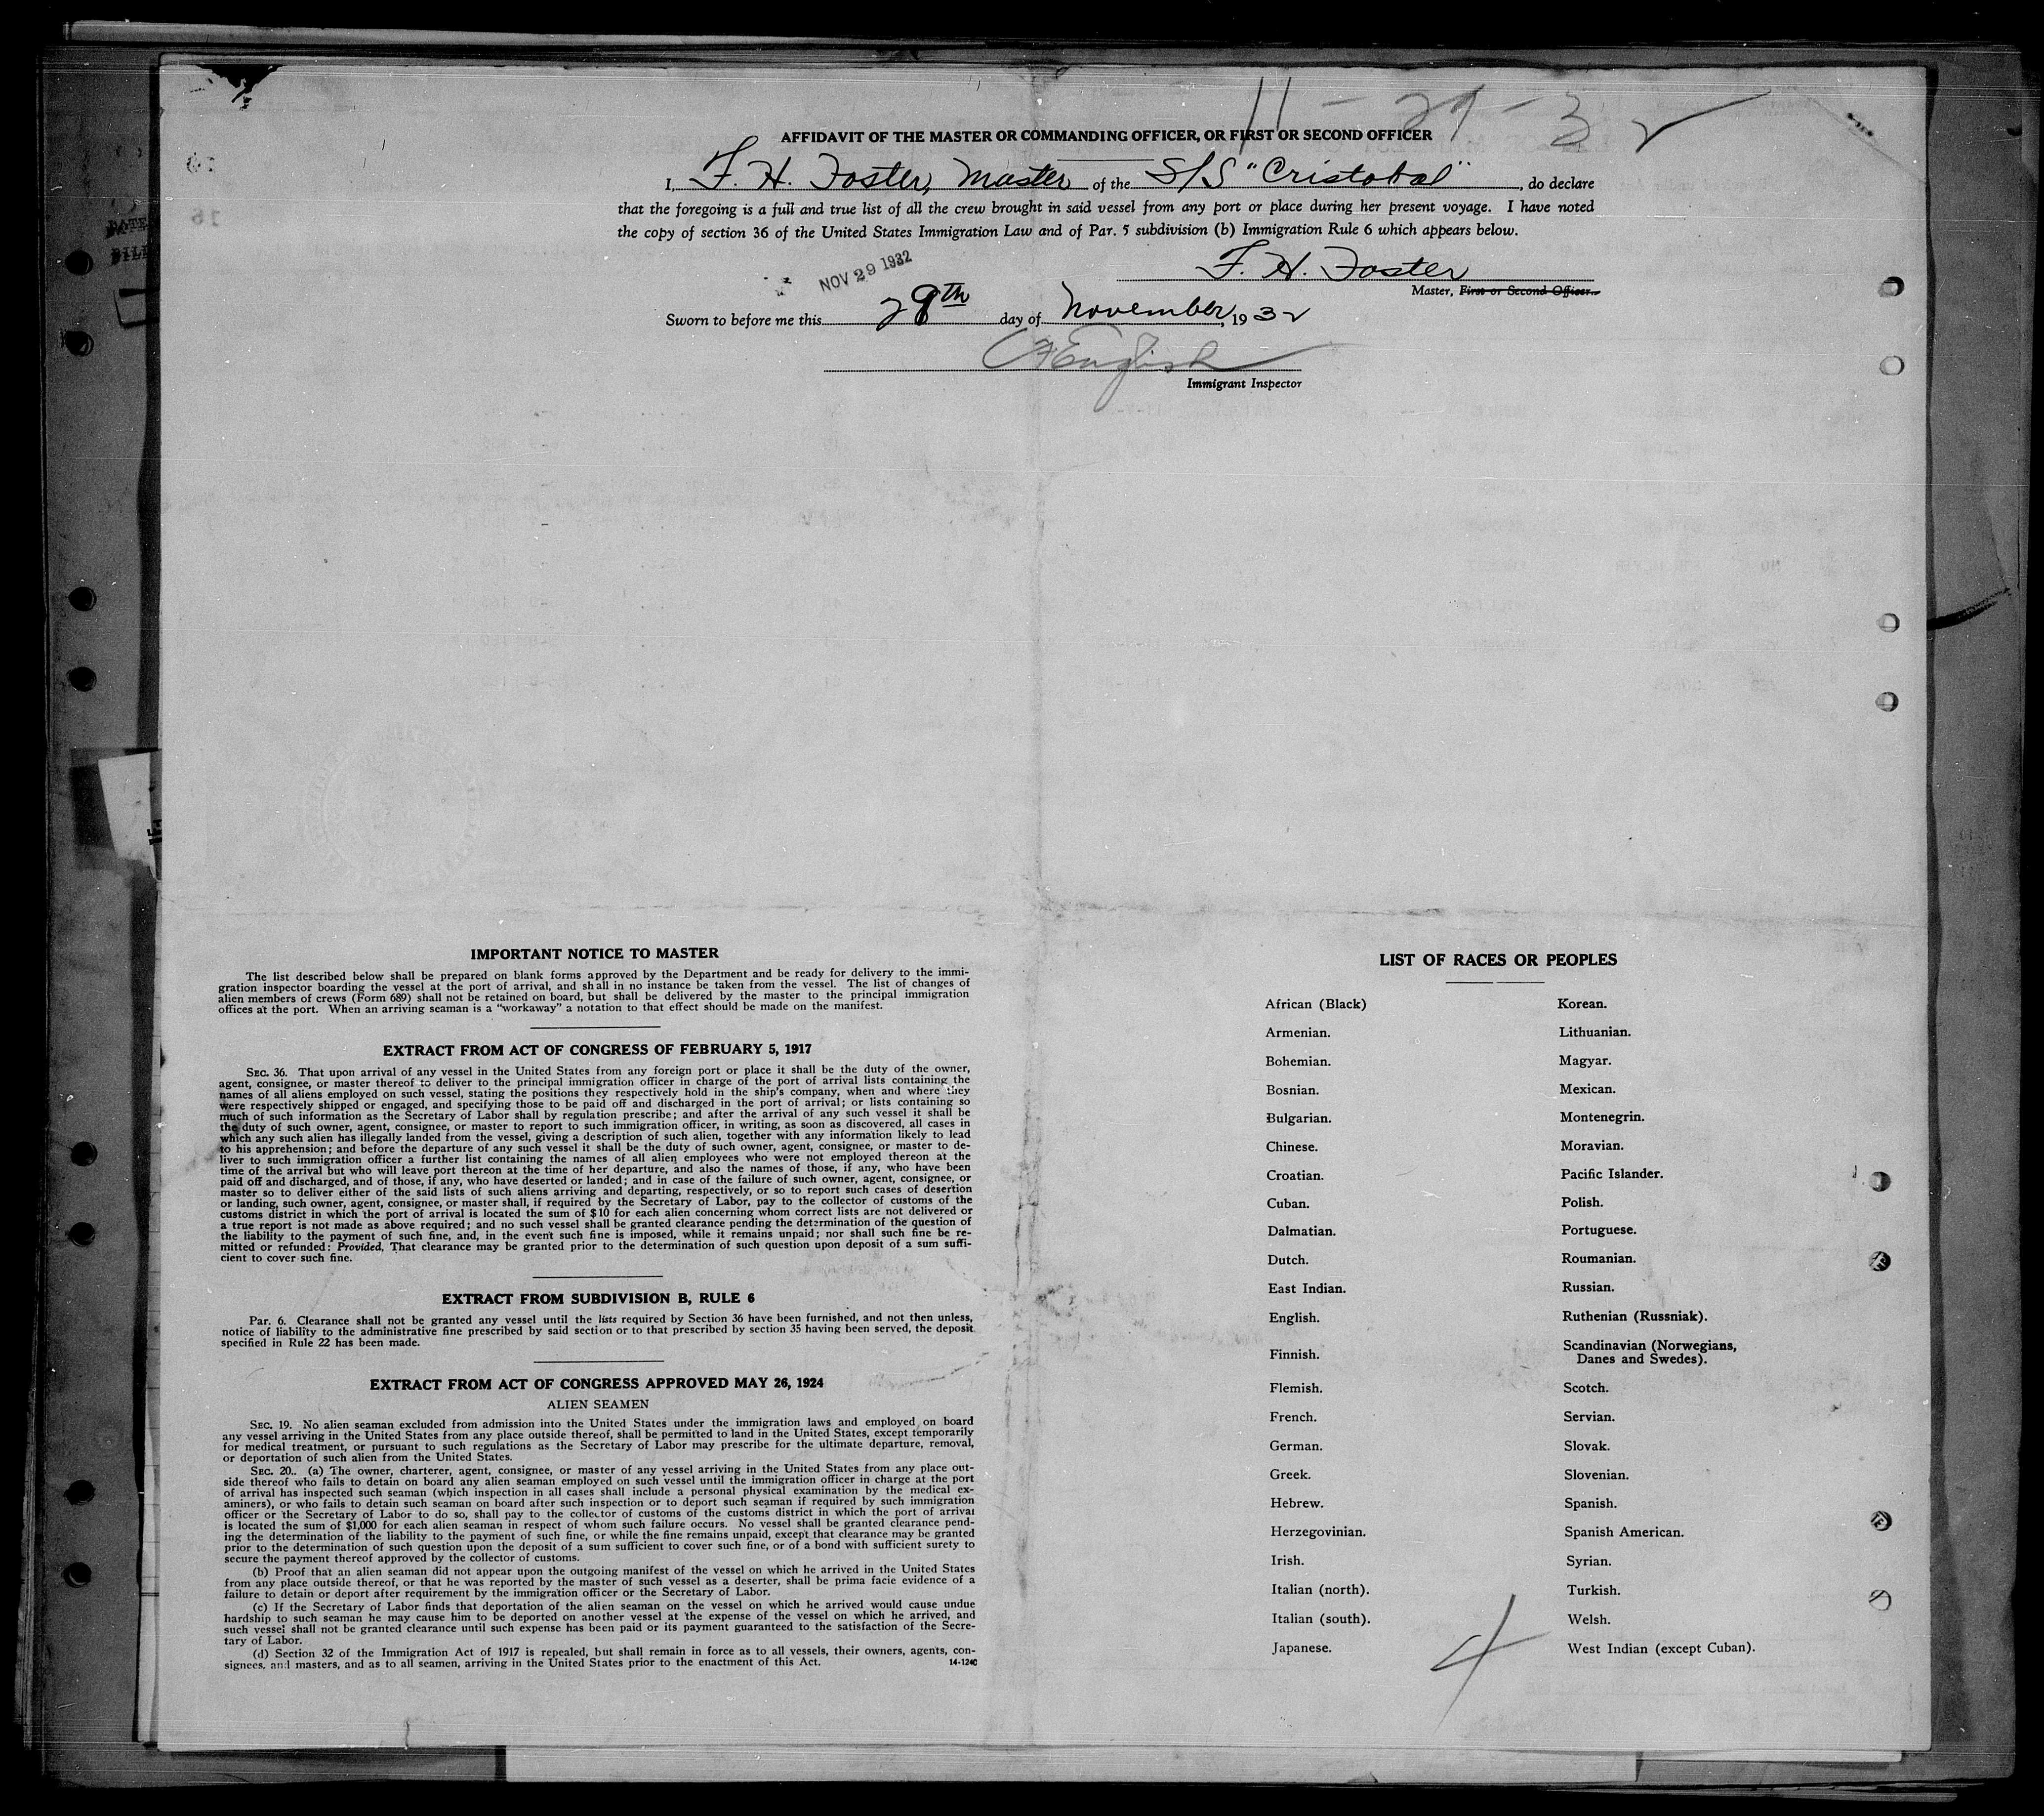 11-29-32
AFFIDAVIT OF THE MASTER OR COMMANDING OFFICER, OR FIRST OR SECOND OFFICER
I, F. H. Foster, Master of the S/S "Cristobal", do declare
that the foregoing is a full and true list of all the crew brought in said vessel from any port or place during her present voyage. I have noted
the copy of section 36 of the United States Immigration Law and of Par. 5 subdivision (b) Immigration Rule 6 which appears below.
NOV 29 1932
F. H. Foster
Master, First or Second Officer.
Sworn to before me this 29th day of November, 1932
English
Immigrant Inspector
IMPORTANT NOTICE TO MASTER
The list described below shall be prepared on blank forms approved by the Department and be ready for delivery to the immi-
gration inspector boarding the vessel at the port of arrival, and shall in no instance be taken from the vessel. The list of changes of
alien members of crews (Form 689) shall not be retained on board, but shall be delivered by the master to the principal immigration
offices at the port. When an arriving seaman is a "workaway" a notation to that effect should be made on the manifest.
EXTRACT FROM ACT OF CONGRESS OF FEBRUARY 5, 1917
SEC. 36. That upon arrival of any vessel in the United States from any foreign port or place it shall be the duty of the owner,
agent, consignee, or master thereof to deliver to the principal immigration officer in charge of the port of arrival lists containing the
names of all aliens employed on such vessel, stating the positions they respectively hold in the ship's company, when and where they
were respectively shipped or engaged, and specifying those to be paid off and discharged in the port of arrival; or lists containing so
much of such information as the Secretary of Labor shall by regulation prescribe; and after the arrival of any such vessel it shall be
the duty of such owner, agent, consignee, or master to report to such immigration officer, in writing, as soon as discovered, all cases in
which any such alien has illegally landed from the vessel, giving a description of such alien, together with any information likely to lead
to his apprehension; and before the departure of any such vessel it shall be the duty of such owner, agent, consignee, or master to de-
liver to such immigration officer a further list containing the names of all alien employees who were not employed thereon at the
time of the arrival but who will leave port thereon at the time of her departure, and also the names of those, if any, who have been
paid off and discharged, and of those, if any, who have deserted or landed; and in case of the failure of such owner, agent, consignee, or
master so to deliver either of the said lists of such aliens arriving and departing, respectively, or so to report such cases of desertion
or landing, such owner, agent, consignee, or master shall, if required by the Secretary of Labor, pay to the collector of customs of the
customs district in which the port of arrival is located the sum of $10 for each alien concerning whom correct lists are not delivered or
a true report is not made as above required; and no such vessel shall be granted clearance pending the determination of the question of
the liability to the payment of such fine, and, in the event such fine is imposed, while it remains unpaid; nor shall such fine be re-
mitted or refunded: Provided, That clearance may be granted prior to the determination of such question upon deposit of a sum suffi-
cient to cover such fine.
EXTRACT FROM SUBDIVISION B, RULE 6
Par. 6. Clearance shall not be granted any vessel until the lists required by Section 36 have been furnished, and not then unless,
notice of liability to the administrative fine prescribed by said section or to that prescribed by section 35 having been served, the deposit
specified in Rule 22 has been made.
EXTRACT FROM ACT OF CONGRESS APPROVED MAY 26, 1924
ALIEN SEAMEN
SEC. 19. No alien seaman excluded from admission into the United States under the immigration laws and employed on board
any vessel arriving in the United States from any place outside thereof, shall be permitted to land in the United States, except temporarily
for medical treatment, or pursuant to such regulations as the Secretary of Labor may prescribe for the ultimate departure, removal,
or deportation of such alien from the United States.
SEC. 20.. (a) The owner, charterer, agent, consignee, or master of any vessel arriving in the United States from any place out-
side thereof who fails to detain on board any alien seaman employed on such vessel until the immigration officer in charge at the port
of arrival has inspected such seaman (which inspection in all cases shall include a personal physical examination by the medical ex-
aminers), or who fails to detain such seaman on board after such inspection or to deport such seaman if required by such immigration
officer or the Secretary of Labor to do so, shall pay to the collector of customs of the customs district in which the port of arrival
is located the sum of $1,000 for each alien seaman in respect of whom such failure occurs. No vessel shall be granted clearance pend-
ing the determination of the liability to the payment of such fine, or while the fine remains unpaid, except that clearance may be granted
prior to the determination of such question upon the deposit of a sum sufficient to cover such fine, or of a bond with sufficient surety to
secure the payment thereof approved by the collector of customs.
(b) Proof that an alien seaman did not appear upon the outgoing manifest of the vessel on which he arrived in the United States
from any place outside thereof, or that he was reported by the master of such vessel as a deserter, shall be prima facie evidence of a
failure to detain or deport after requirement by the immigration officer or the Secretary of Labor.
(c) If the Secretary of Labor finds that deportation of the alien seaman on the vessel on which he arrived would cause undue
hardship to such seaman he may cause him to be deported on another vessel at the expense of the vessel on which he arrived, and
such vessel shall not be granted clearance until such expense has been paid or its payment guaranteed to the satisfaction of the Secre-
tary of Labor.
(d) Section 32 of the Immigration Act of 1917 is repealed, but shall remain in force as to all vessels, their owners, agents, con-
signees, and masters, and as to all seamen, arriving in the United States prior to the enactment of this Act.
14-1240
LIST OF RACES OR PEOPLES
African (Black)
Armenian.
Bohemian.
Bosnian.
Bulgarian.
Chinese.
Croatian.
Cuban.
Dalmatian.
Dutch.
East Indian.
English.
Finnish.
Flemish.
French.
German.
Greek.
Hebrew.
Herzegovinian.
Irish.
Italian (north).
Italian (south).
Japanese.
Korean.
Lithuanian.
Magyar.
Mexican.
Montenegrin.
Moravian.
Pacific Islander.
Polish.
Portuguese.
Roumanian.
Russian.
Ruthenian (Russniak).
Scandinavian (Norwegians,
Danes and Swedes).
Scotch.
Servian.
Slovak.
Slovenian.
Spanish.
Spanish American.
Syrian.
Turkish.
Welsh.
West Indian (except Cuban).
4